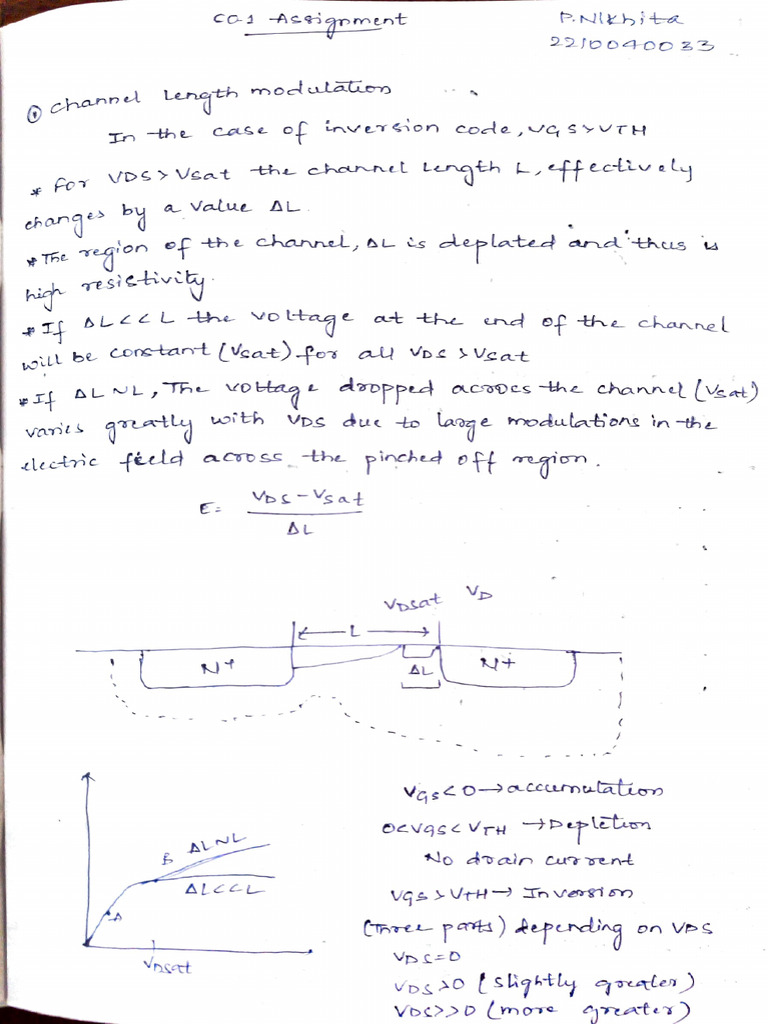 CO-1 Assignment
P. Nikhita
2210040033
① Channel Length modulation
In the case of inversion code, VGS>VTH
* For VDS>Vsat the channel length L, effectively
changes by a value ΔL.
* The region of the channel, ΔL is deplated and thus is
high resistivity.
* If ΔL<<L the voltage at the end of the channel
will be constant (Vsat) for all VDS >Vsat
* If ΔL~L, The voltage dropped across the channel (Vsat)
varies greatly with VDS due to large modulations in the
electric field across the pinched off region.
E = VDS-Vsat
ΔL
VDsat VD
L
N+ ΔL N+
B ΔL~L
ΔL<<L
A
VDsat
VGS<0→accumulation
0<VGS<VTH →Depletion
No drain current
VGS>VTH→Inversion
(Three parts) depending on VDS
VDS=0
VDS>0 (slightly greater)
VDS>>0 (more greater)